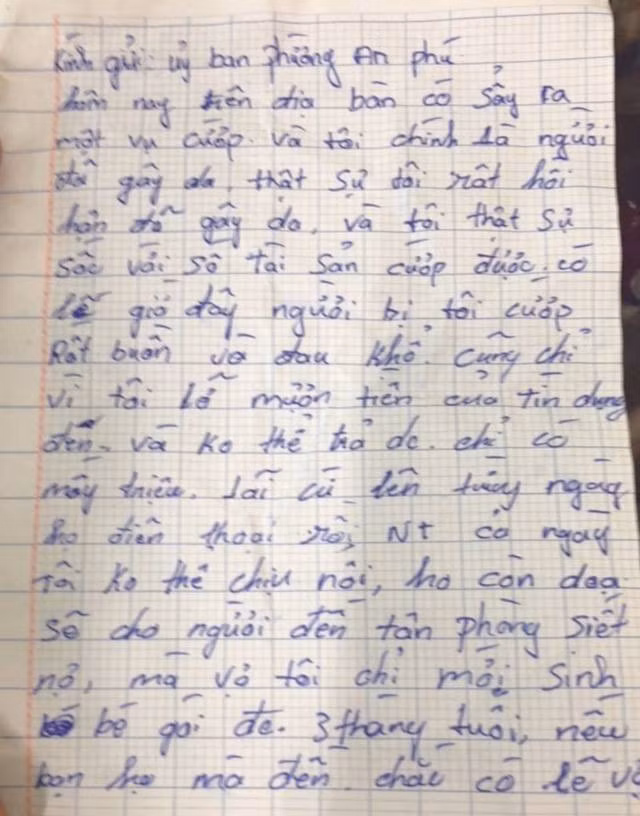 Kính gửi: ủy ban phường An phú
hôm nay trên địa bàn có sảy ra
một vụ cướp. và tôi chính là người
đã gây da, thật sự tôi rất hối
hận đã gây da, và tôi thật sự
sốc với số tài sản cướp được. có
lẽ giờ đây người bị tôi cướp
Rất buồn và đau khổ. cũng chỉ
vì tôi lỡ mượn tiền của tín dụng
đen. và ko thể trả đc. chỉ có
mấy triệu. lãi cứ lên từng ngày
họ điện thoại rồi NT cả ngày
tôi ko thể chịu nổi, họ còn dọa
sẽ cho người đến tận phòng siết
nợ, mà vợ tôi chỉ mới sinh
bé gái đc. 3 tháng tuổi, nếu
bọn họ mà đến chắc có lẽ vợ